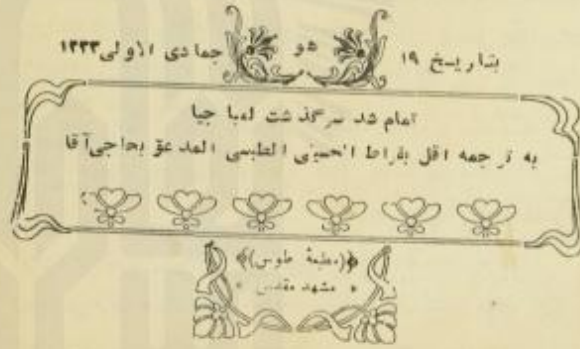 هو
بتاریخ ۱۹ جمادی الاولی ۱۳۳۳
تمام شد سرگذشت لمبا جیا
به ترجمه اقل بقراط الحسینی الطبسی المدعو بحاجی آقا
(مطبعهٔ طوس)
مشهد مقدس